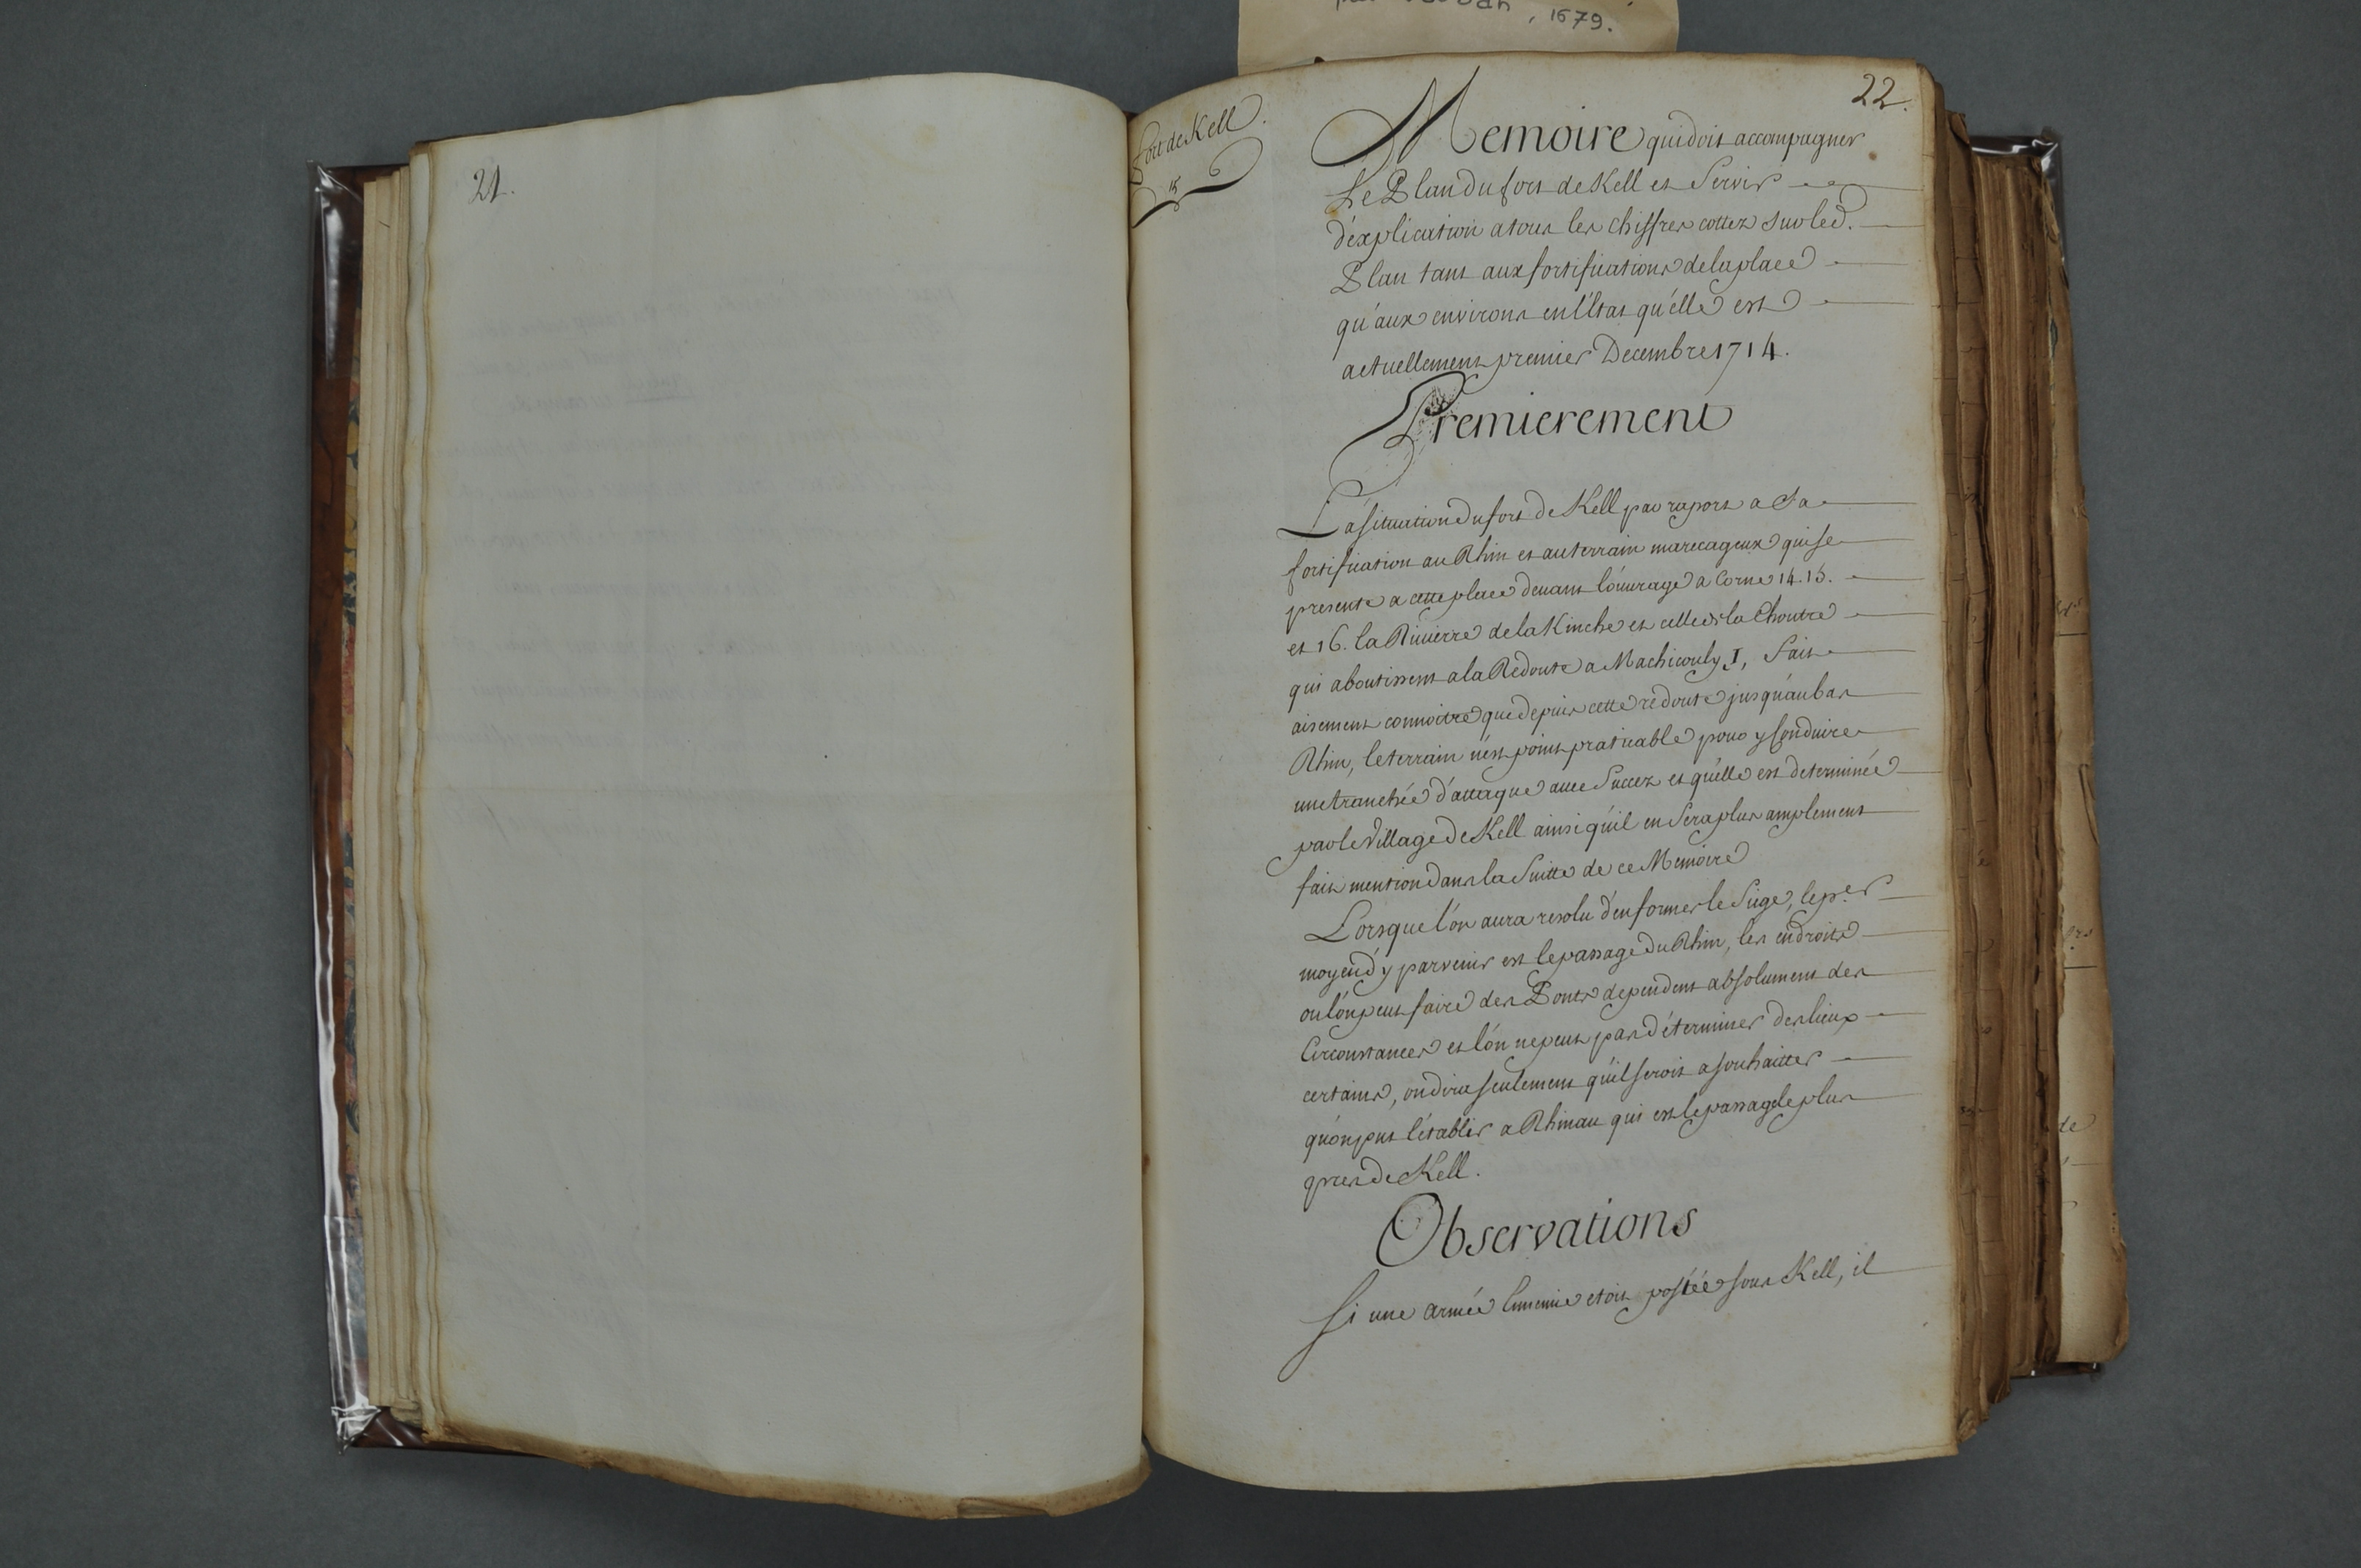 , 1679.
21.
22.
Fort de Kell.
15
Memoire qui doit accompagner
Le Plan du fort de Kell et Servir
d'explication a tous les chiffres cottez sur led.
Plan tant aux fortifications de la place
qu'aux environs en l'Etat qu'elle est
actuellement premier Decembre 1714.
Premierement
La situation du fort de Kell par raport a Sa
fortification au Rhin et au terrain marecageux qui se
presente a cette place devant l'ouvrage a Corne 14. 15.
et 16. la Riviere de la Kinche et celle de la Choutre
qui aboutissent a la Redoute a Machicouly I, fait
aisement connoitre que depuis cette redoute jusqu'au bas
Rhin, le terrain n'est point praticable pour y Conduire
une tranchée d'attaque avec Succez et qu'elle est determinée
par le Village de Kell ainsi qu'il en Sera plus amplement
fait mention dans la Suitte de ce Memoire
Lorsque l'on aura resolu d'en former le Siege, le p.er
moyen d'y parvenir est le passage du Rhin, les endroits
ou l'on peut faire des Ponts dependent absolument des
Circonstances et l'on ne peut pas déterminer des lieux
certains, on dira seulement qu'il seroit a souhaitter
qu'on put l'établir a Rhinau qui est le passage le plus
pres de Kell.
Observations
Si une armée Ennemie etoit postée sous Kell, il